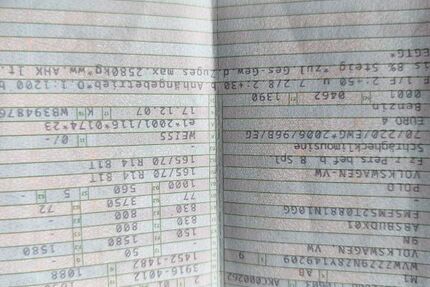 M1 AB
WVWZZZ9NZ8Y149209
VOLKSWAGEN, VW
9N
ABSBUDX01
POLO
VOLKSWAGEN-VW
Fz.z.Pers.bef.b. 8 Spl.
Schräghecklimousine
70/220/EWG*2006/96B/EG
EURO 4
Benzin
0001 0462 1390
3916-4012 1088
1452-1482
50 1580
150 1580
830 800
830 800
77 3750 72
1000 560 5
165/70 R14 81T
165/70 R14 81T
WEISS -/0
e1*2001/116*0174*23
17.12.07 K
7.2:+50 u 7.2/8.2:+30 b.Anhängebetrieb*O.1:1200 b
is 8% Steig.*zul.Ges-Gew.d.Zuges max.2580kg*ww.AHK lt.
EGTG*